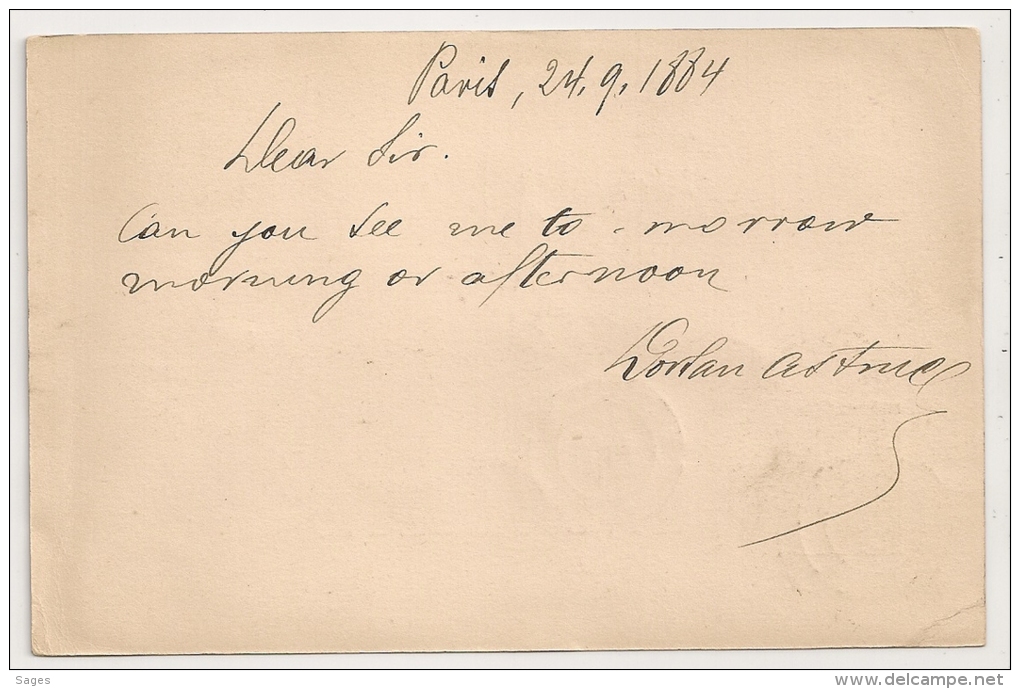 Paris, 24.9.1884
Dear Sir.
Can you see me to-morrow
morning or afternoon
Astruc
Sages
www.delcampe.net